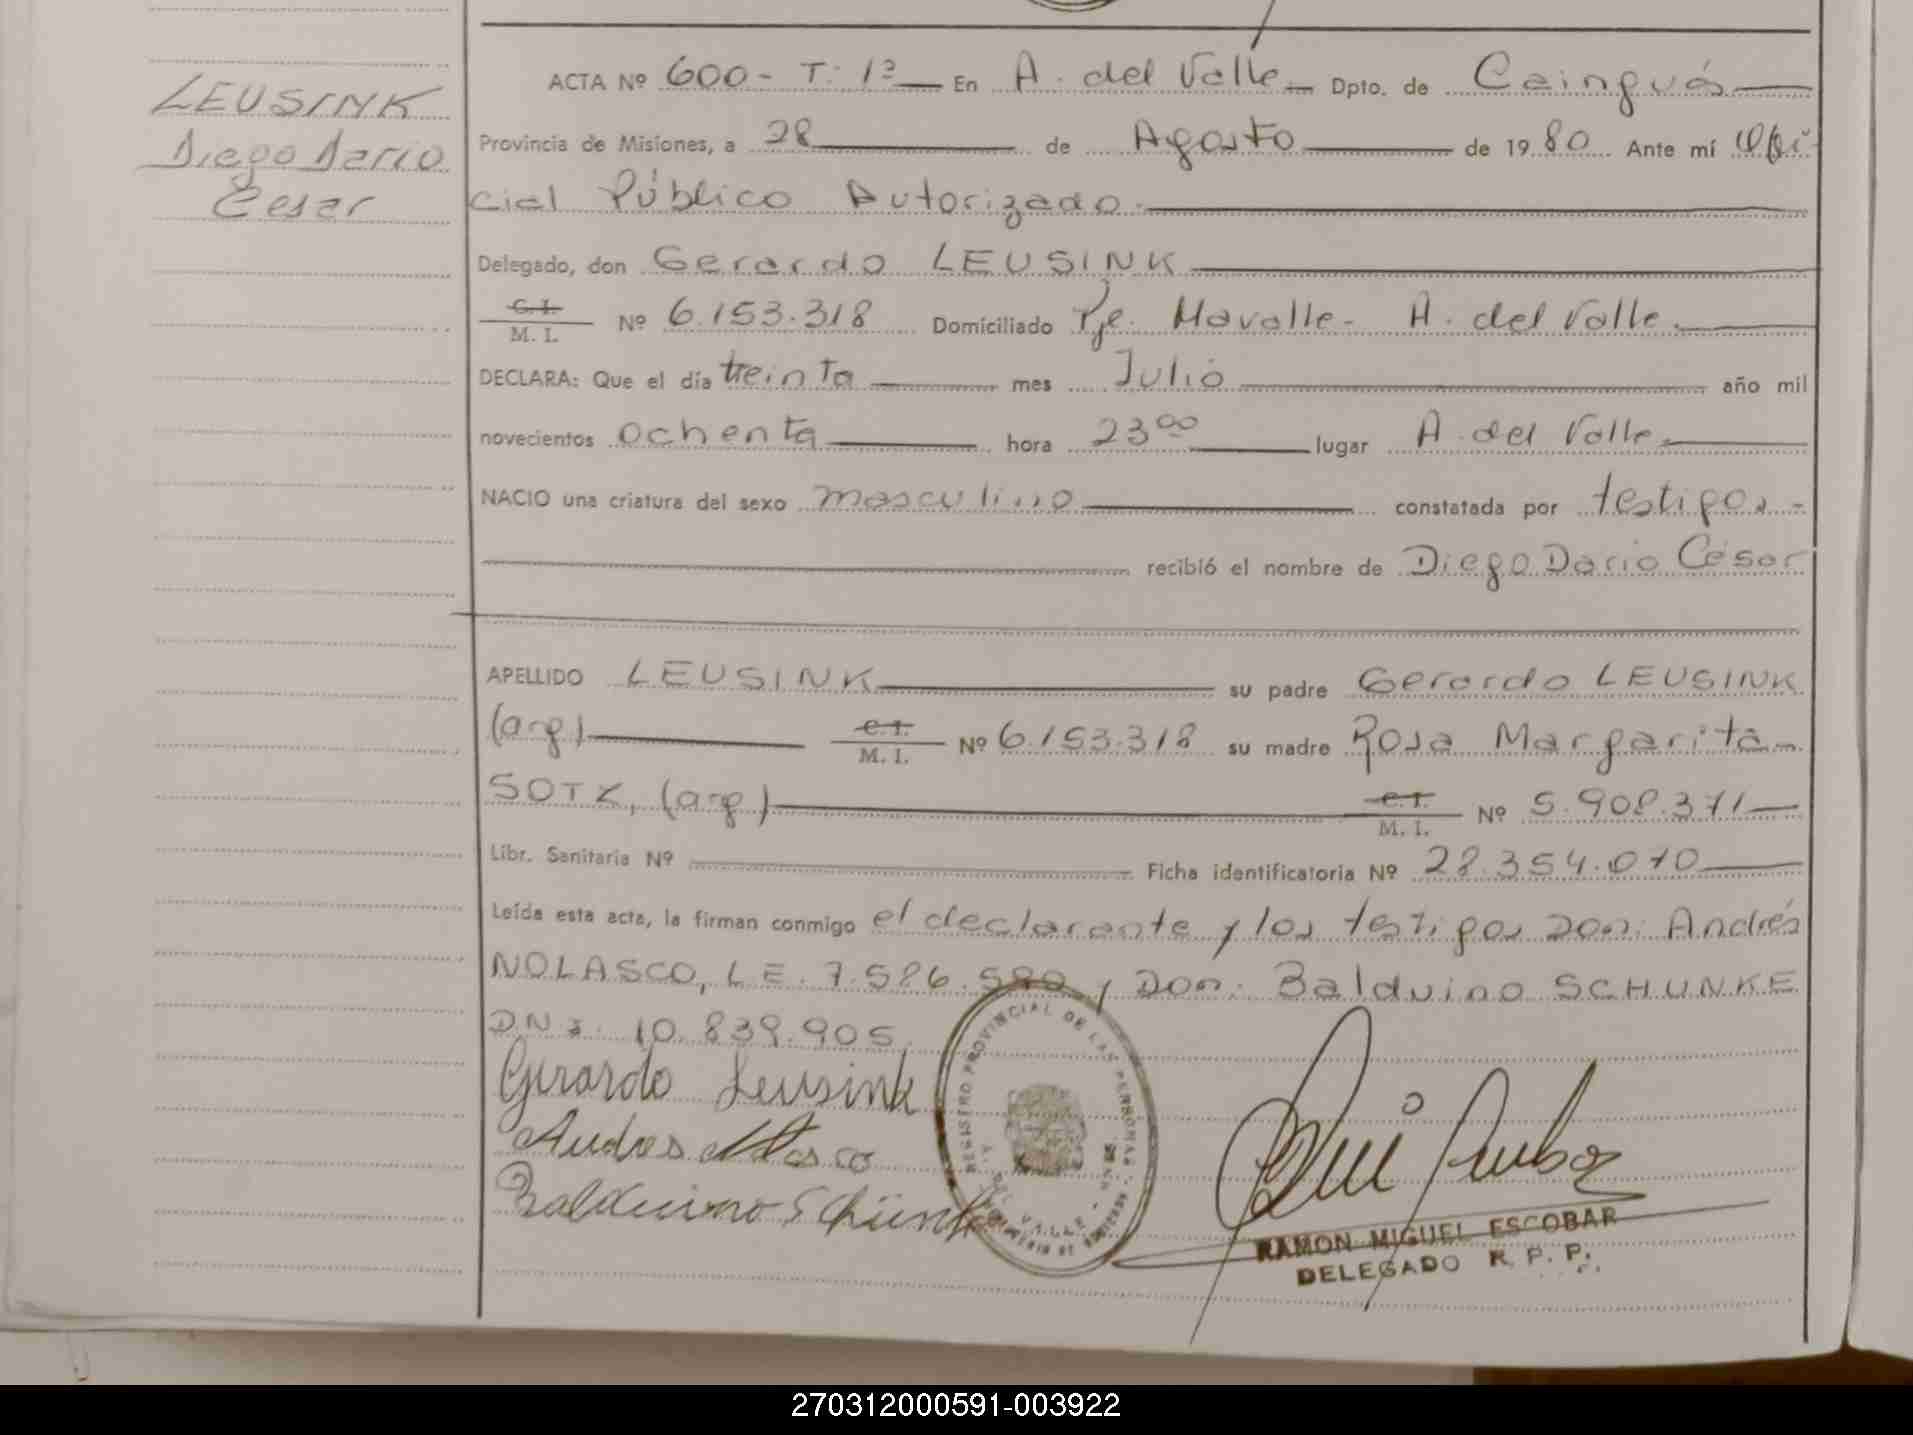 LEUSINK
Diego Dario
Cesar
ACTA Nº 600- T: 1º En A. del Valle Dpto. de Cainguás
Provincia de Misiones, a 28 de Agosto de 1980 Ante mí Ofi-
cial Público Autorizado.
Delegado, don Gerardo LEUSINK
C. I. / M. I. Nº 6.153.318 Domiciliado Pje. Mavalle- A. del Valle
DECLARA: Que el día treinta mes Julio año mil
novecientos ochenta hora 23⁰⁰ lugar A. del Valle
NACIO una criatura del sexo masculino constatada por testigos-
recibió el nombre de Diego Dario César
APELLIDO LEUSINK su padre Gerardo LEUSINK
(arg) C. I. / M. I. Nº 6.153.318 su madre Rosa Margarita
SOTZ, (arg) C. I. / M. I. Nº 5.908.371
Libr. Sanitaria Nº Ficha identificatoria Nº 28.354.070
Leída esta acta, la firman conmigo el declarante y los testigos Don: Andrés
NOLASCO, L E. 7.586.580 y Don: Balduino SCHUNKE
DNI. 10.839.905
Gerardo Leusink
Balduino Schünke
REGISTRO PROVINCIAL DE LAS PERSONAS
A. DEL VALLE
RAMON MIGUEL ESCOBAR
DELEGADO R. P. P.
270312000591-003922